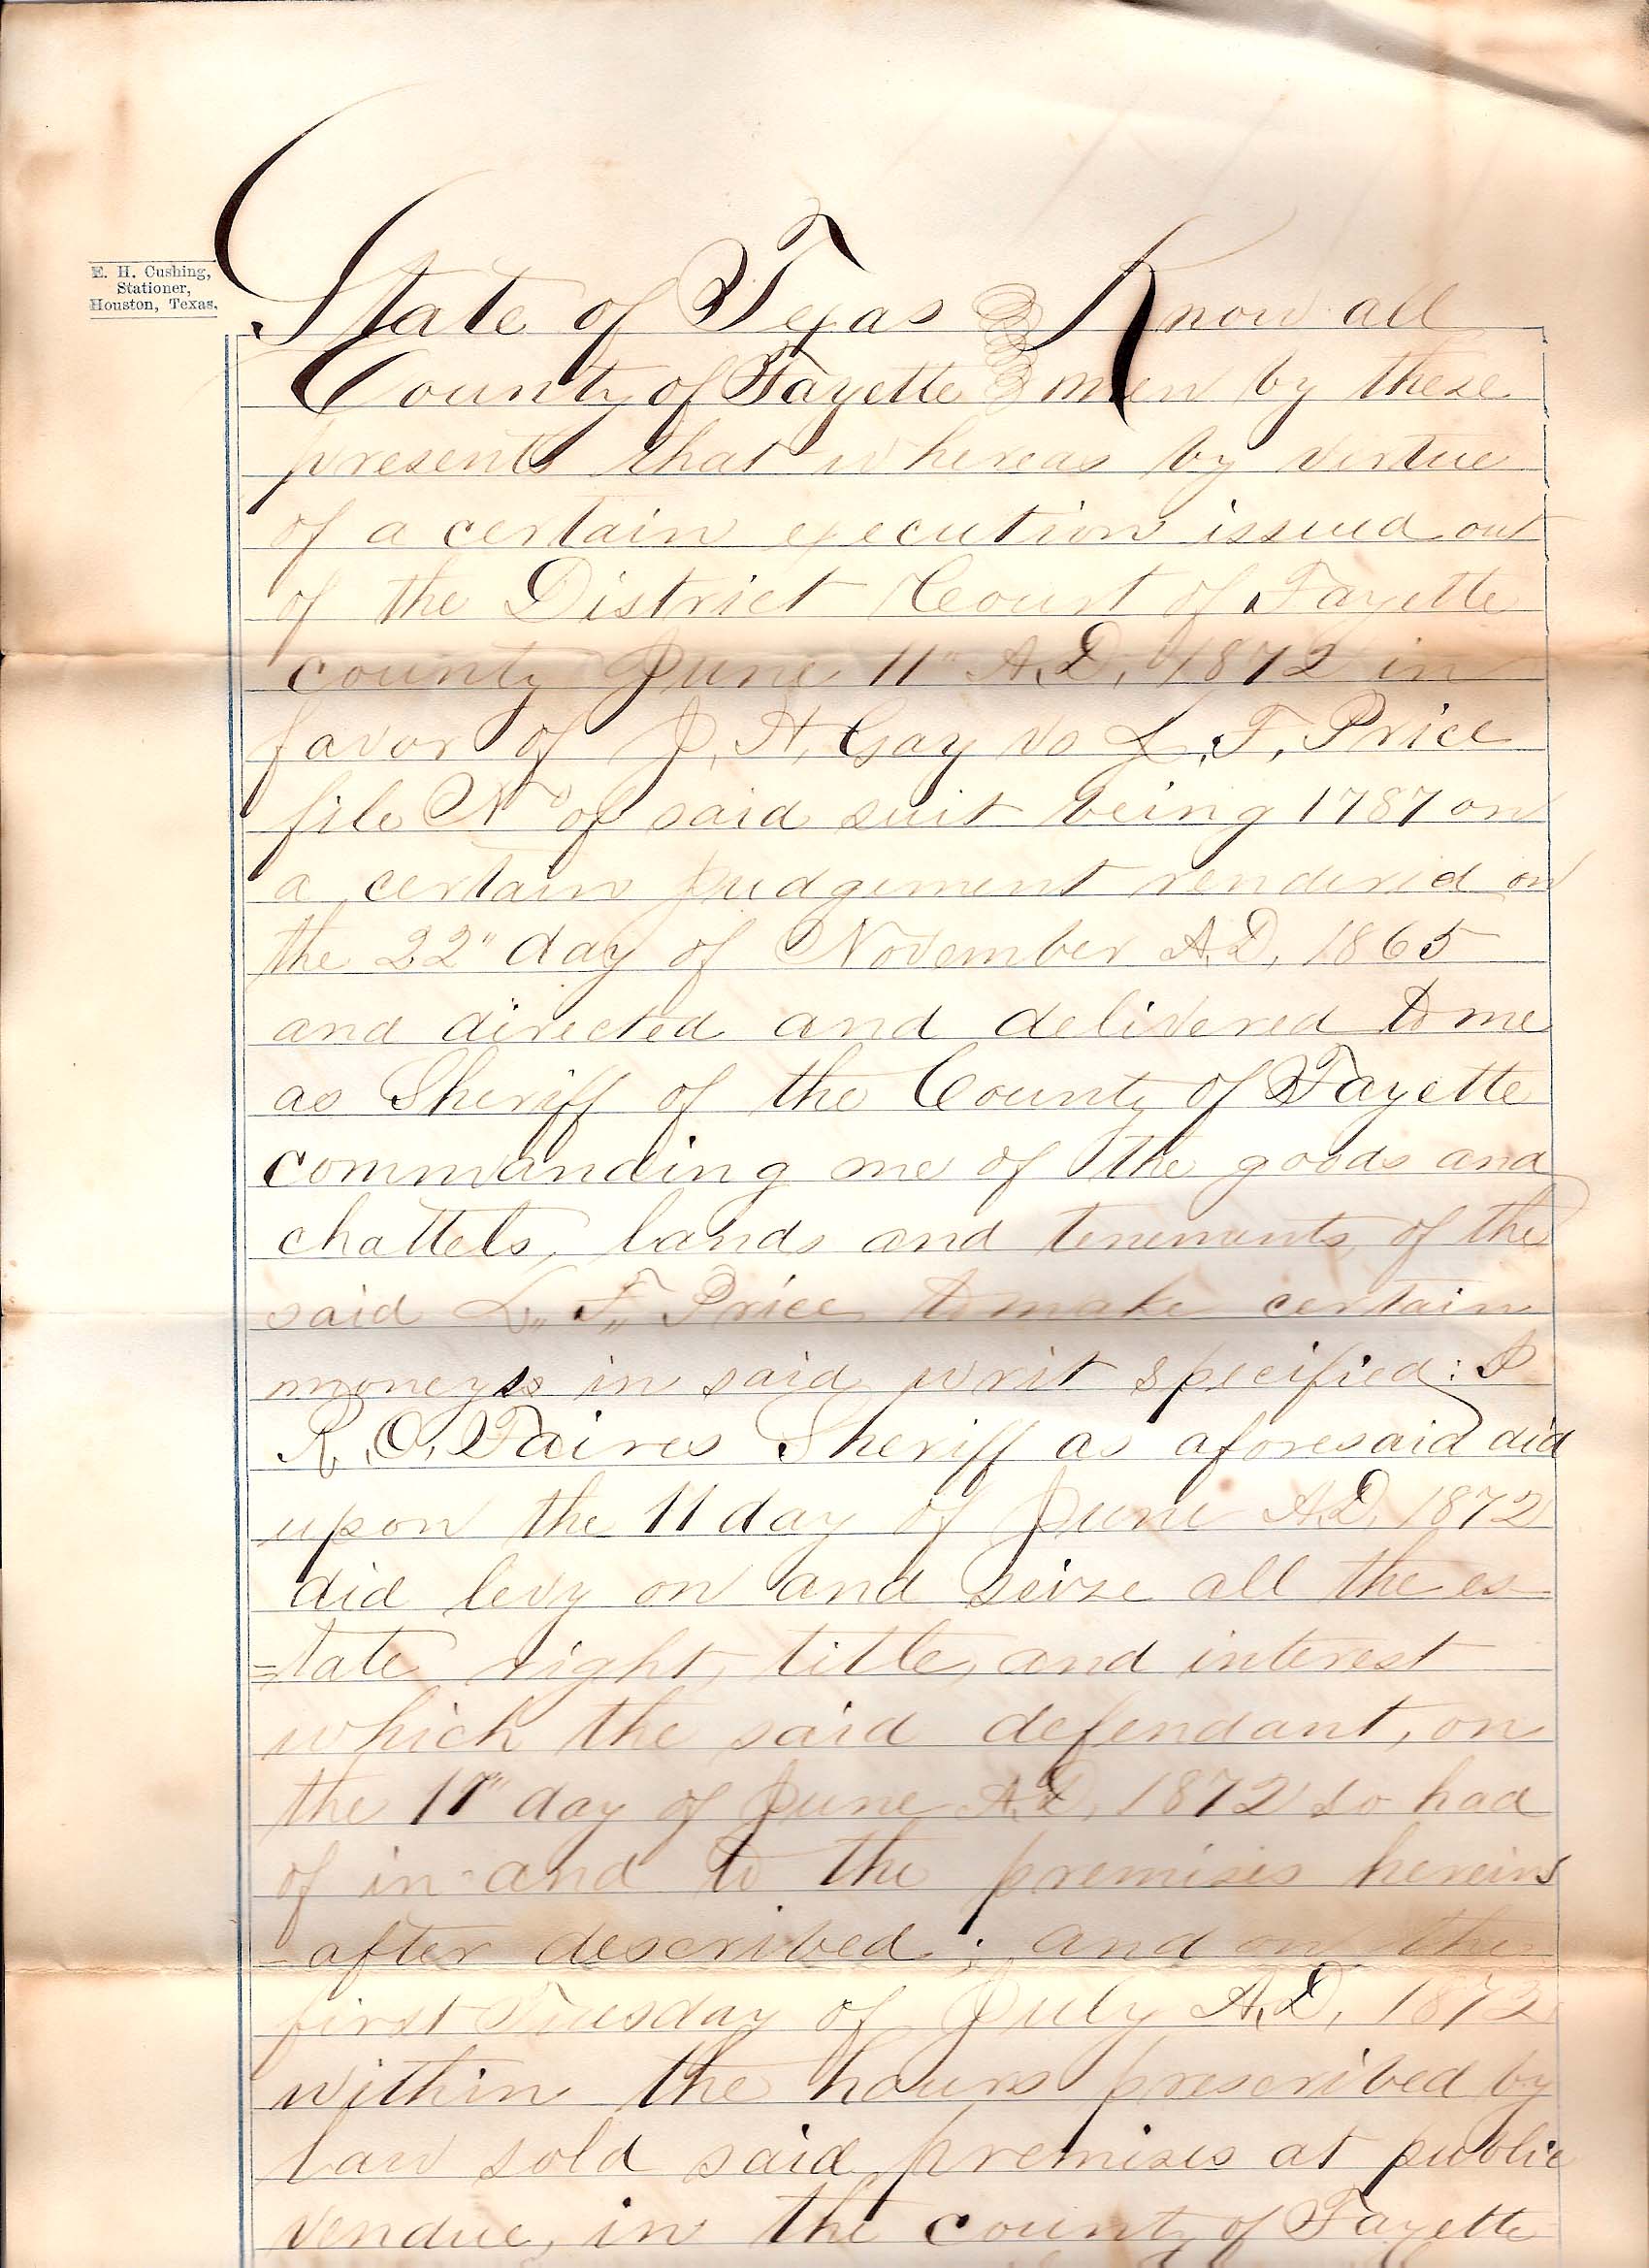 E. H. Cushing,
Stationer,
Houston, Texas.
State of Texas Know all
County of Fayette men by these
presents that whereas by virtue
of a certain execution issued out
of the District Court of Fayette
county June 11" A.D. 1872 in
favor of J. H. Gay vs L. F. Price
file No of said suit being 1787 on
a certain judgement rendered on
the 22" day of November A.D. 1865
and directed and delivered to me
as Sheriff of the County of Fayette
commanding me of the goods and
chattels, lands and tenements of the
said L,, F,, Price to make certain
moneys in said writ specified: I
R. O. Faires Sheriff as aforesaid did
upon the 11 day of June A.D. 1872
did levy on and seize all the es
=tate right, title, and interest
which the said defendant, on
the 11" day of June A.D. 1872 so had
of in and to the premises herein
after described; and on the
first Tuesday of July A.D. 1872
within the hours prescribed by
law sold said premises at public
vendue, in the county of Fayette